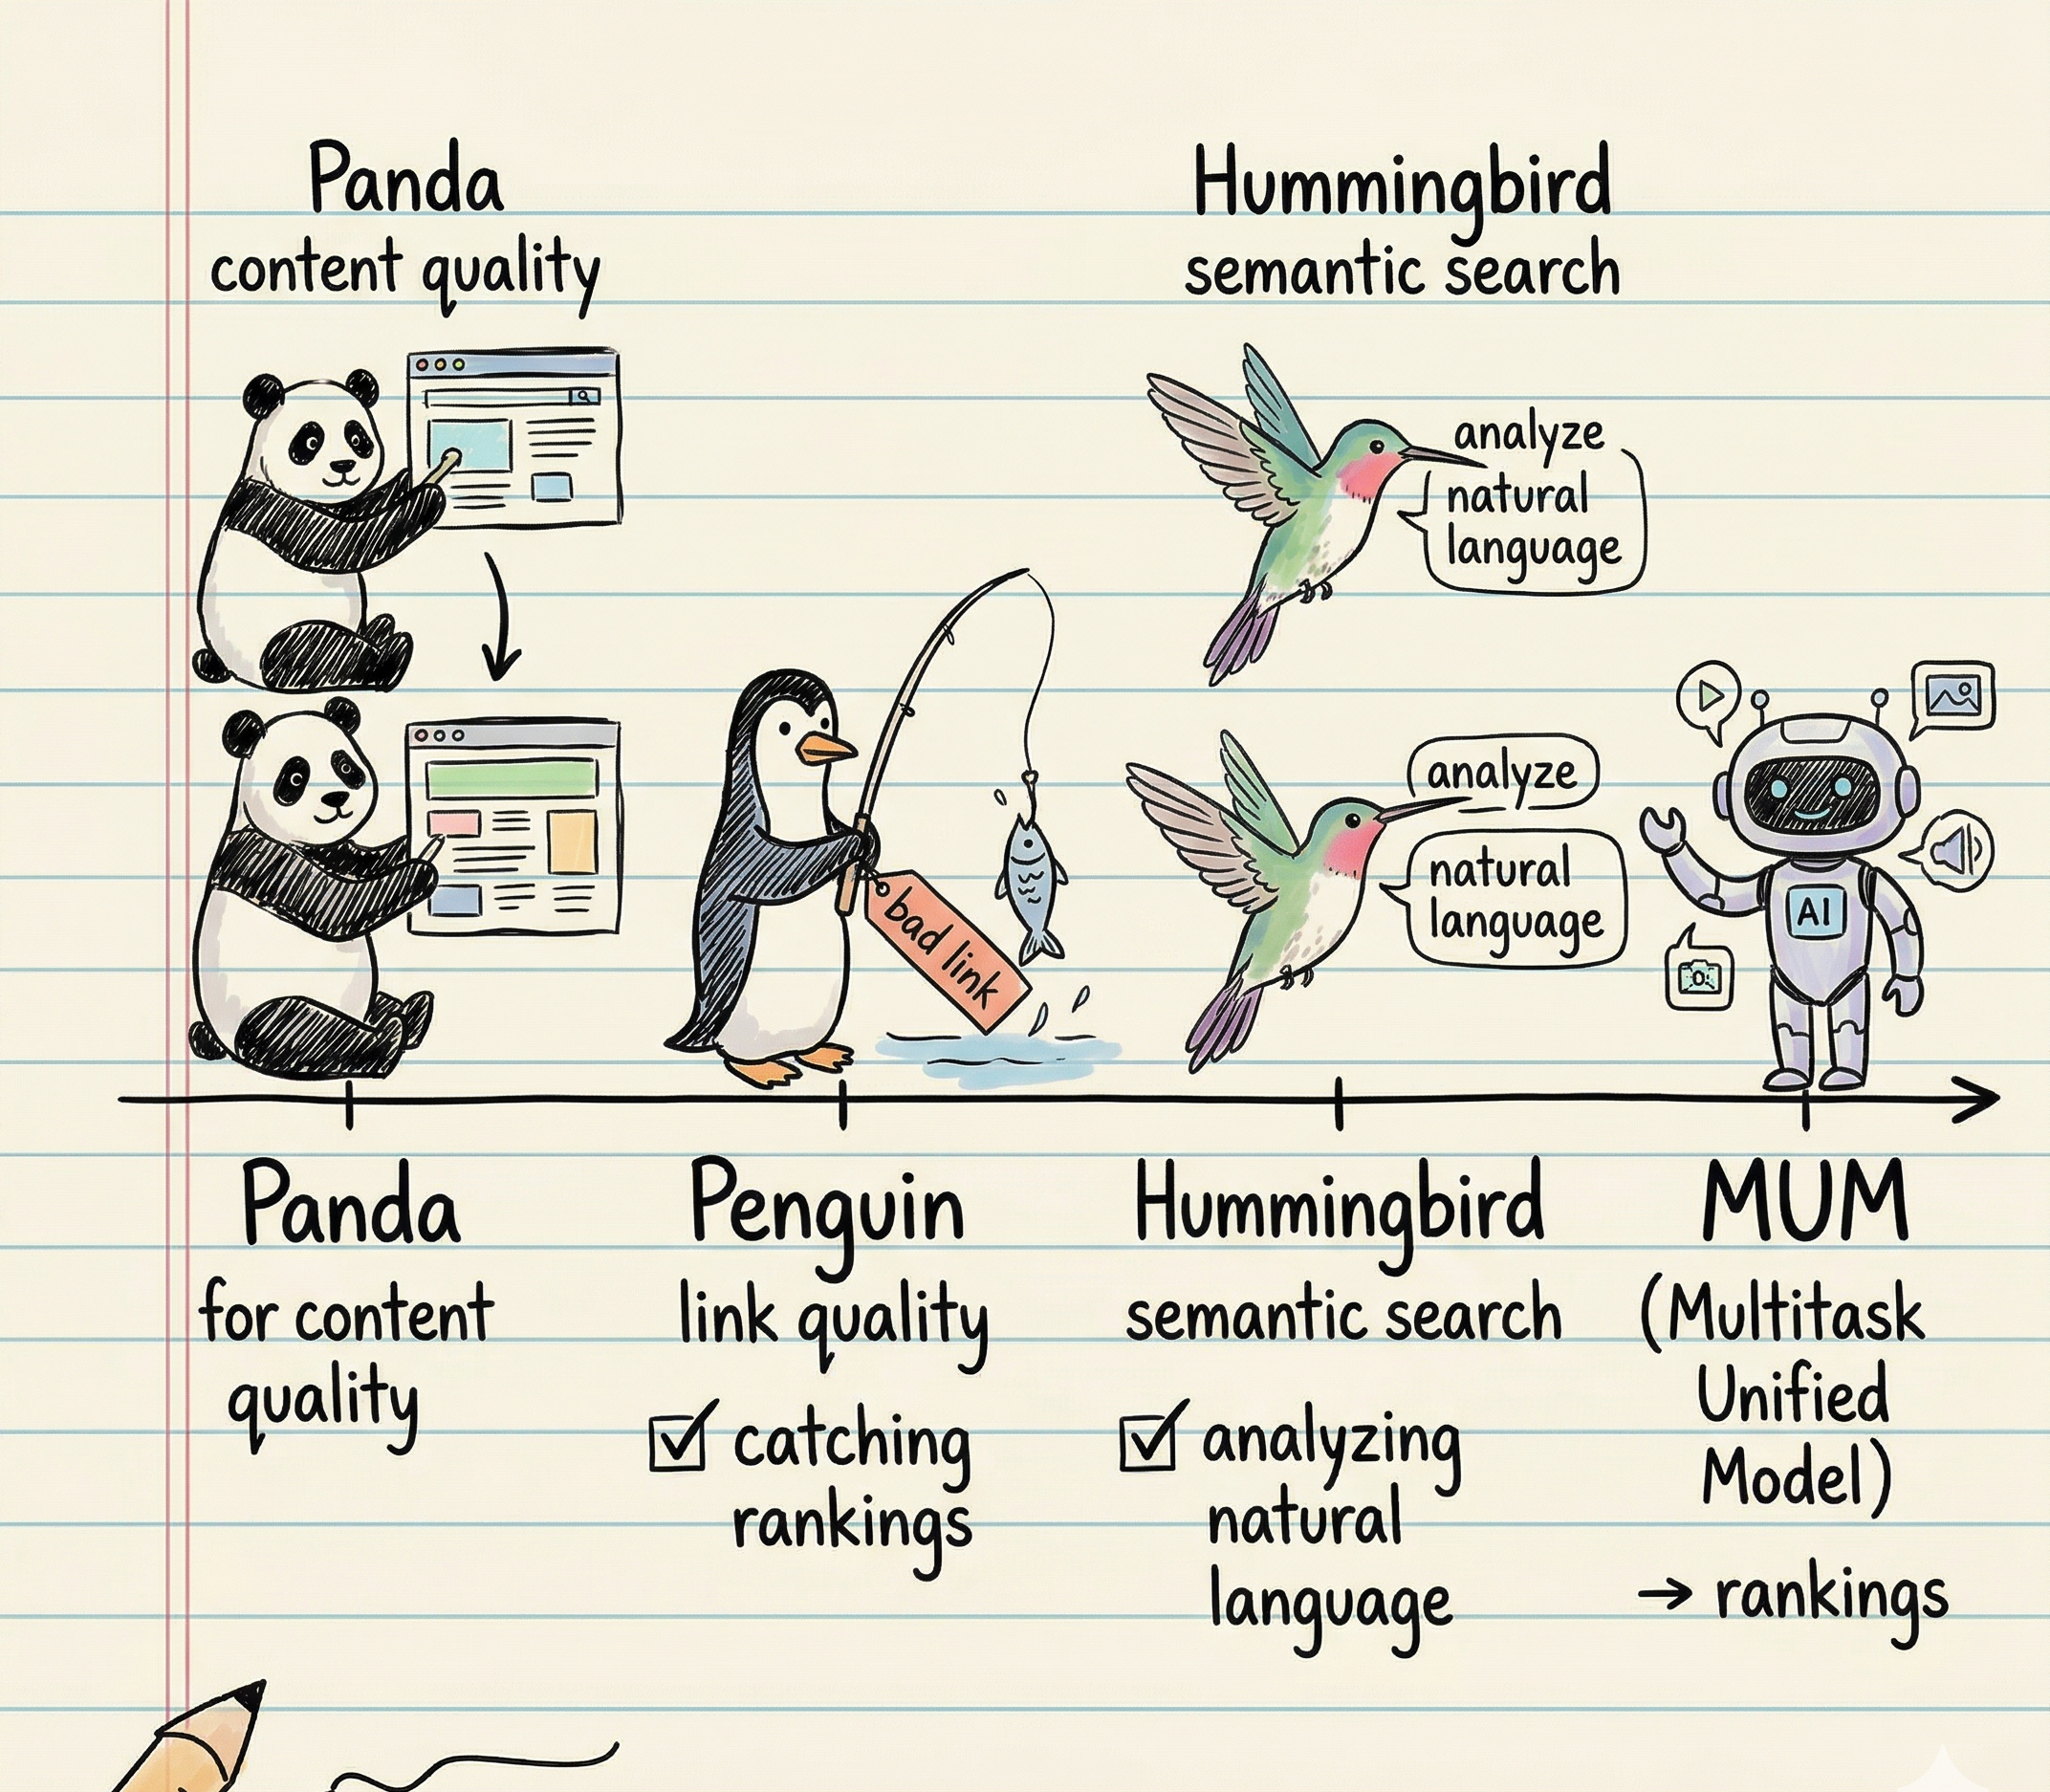 Panda
content quality
Hummingbird
semantic search
analyze
natural
language
bad link
analyze
natural
language
AI
Panda
for content
quality
Penguin
link quality
catching
rankings
Hummingbird
semantic search
analyzing
natural
language
MUM
(Multitask
Unified
Model)
→ rankings